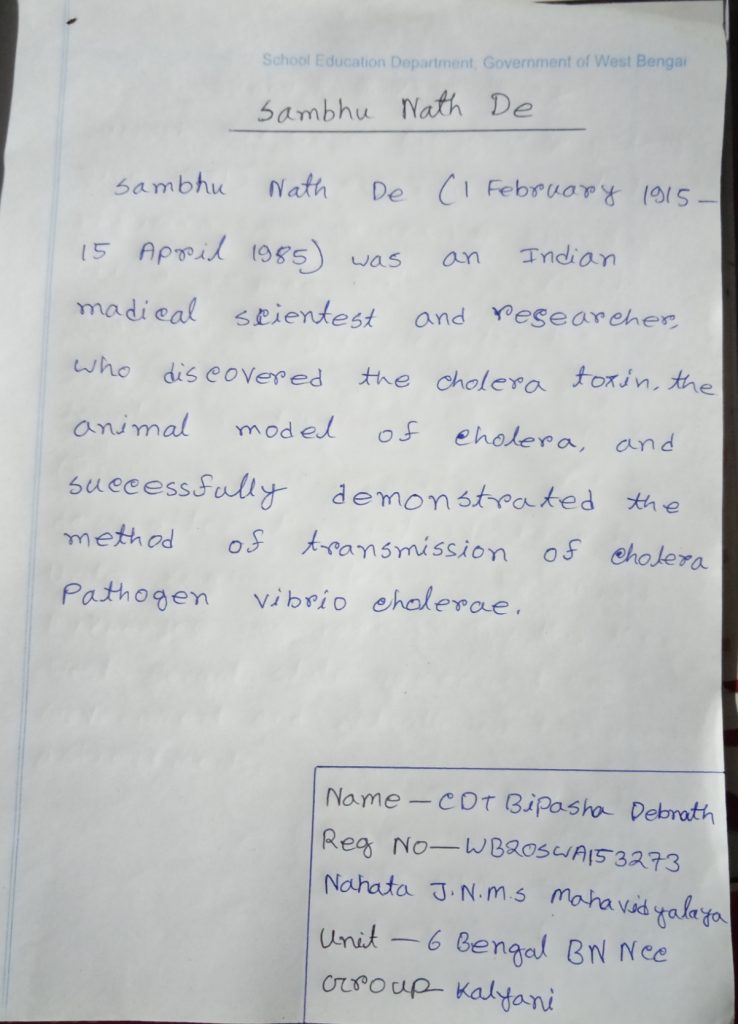 School Education Department, Government of West Bengal
Sambhu Nath De
Sambhu Nath De (1 February 1915 –
15 April 1985) was an Indian
madical scientest and researcher,
who discovered the cholera toxin, the
animal model of cholera, and
successfully demonstrated the
method of transmission of cholera
Pathogen vibrio cholerae.
Name – CDT Bipasha Debnath
Reg No – WB20SWA153273
Nahata J.N.M.S Mahavidyalaya
Unit – 6 Bengal BN Ncc
Group Kalyani